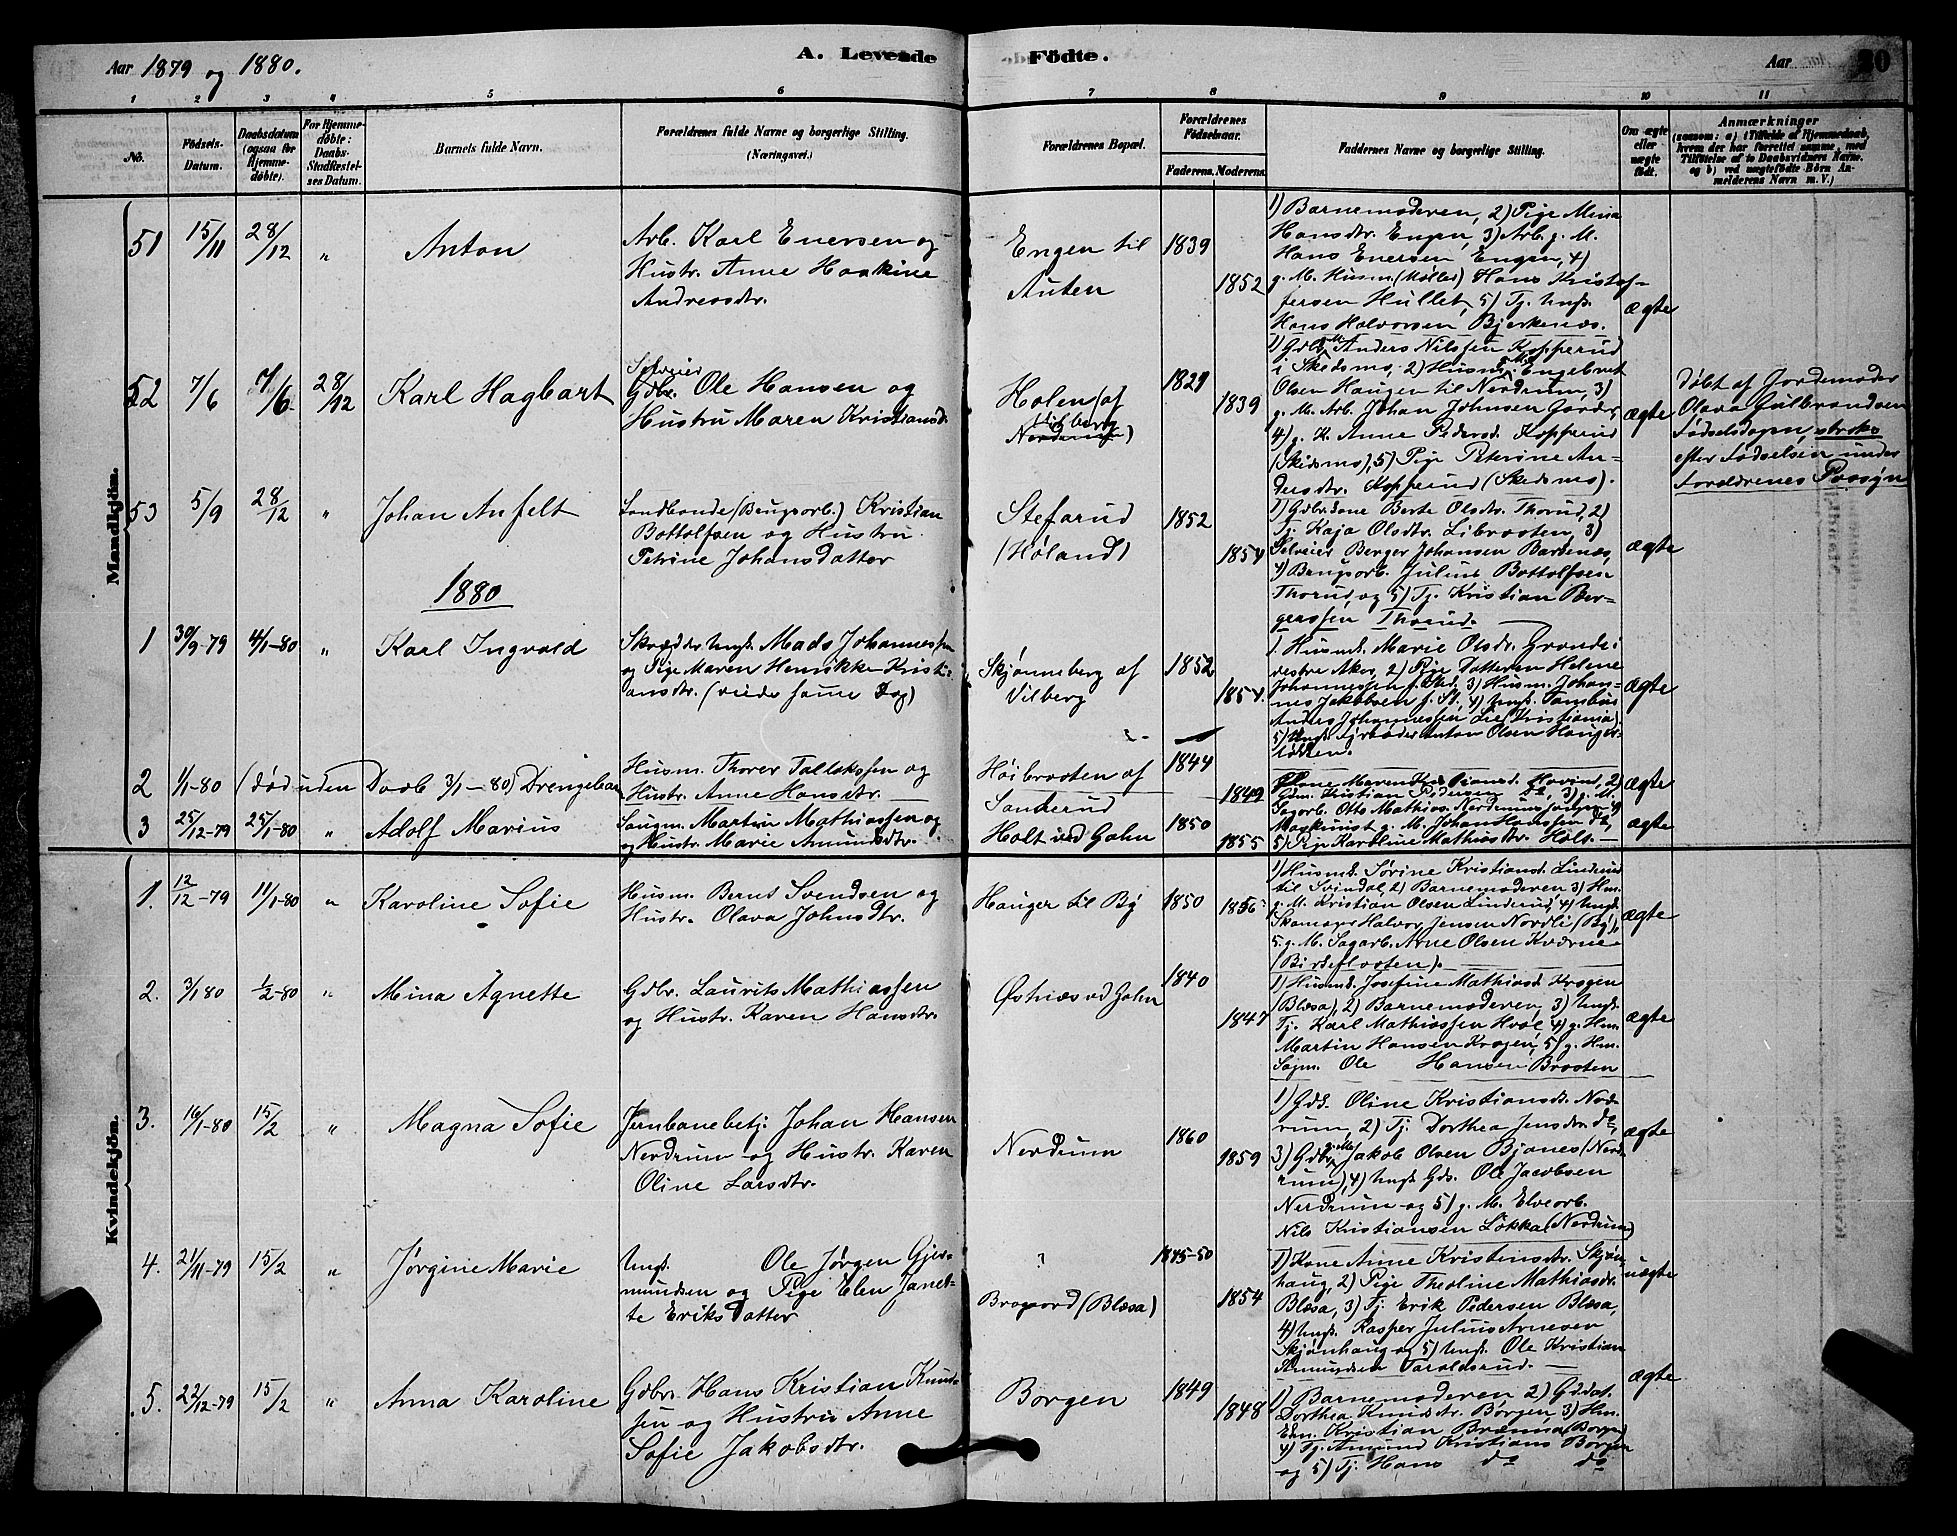 Aar 1879 og 1880.
A. Levende Födte.
Aar 20
1 2 3 4 5 6 7 8 9 10 11
No.
Födsels-
Datum.
Daabsdatum
(ogsaa for
Hjemme-
döbte).
For Hjemme-
döbte:
Daabs-
Stadfæstel-
ses Datum.
Barnets fulde Navn.
Forældrenes fulde Navne og borgerlige Stilling.
(Næringsvei.)
Forældrenes Bopæl.
Forældrenes
Födselsaar.
Faderens. Moderens.
Faddernes Navne og borgerlige Stilling.
Om ægte
eller
uægte
födt.
Anmærkninger
(saasom: a) i Tilfælde af Hjemmedaab,
hvem der har forrettet samme, med
Tilföielse af to Daabsvidners Navne.
og b) ved uægtefödte Börn An-
melderens Navn m. V.)
Mandkjön.
51 15/11 28/12 " Anton
Arb. Karl Enersen og
Hustr. Anne Haakine
Andreasdtr.
Engen til
Auten
1839
1852
1) Barnemoderen, 2) Pige Mina
Hansdtr. Engen, 3) Arb. g. M.
Hans Enersen Engen, 4)
g. M. Husm. (Møller) Hans Kristof-
fersen Hullet, 5) Tj. Ungk.
Hans Halvorsen Bjerkenæs.
ægte
52 7/6 7/6 28/12 Karl Hagbart
Selveier
Gdbr. Ole Hansen og
Hustru Maren Kristiansd.
Holen (af
Vilberg
Nordrum)
1829
1839
1) Gdbr. Anders Nilssen Kopperud
i Skedsmo, 2) Husm. Engebret
Olsen Haugen til Nerdrum, 3)
g. M. Arb. Johan Johnsen Garder,
4) g. K. Anne Pedersd. Kopperud
(Skedsmo), 5) Pige Peterine An-
dersdtr. Kopperud (Skedsmo).
ægte
Døbt af Jordemoder
Olava Gulbrandsen
Fødselsdagen, straks
efter Fødselsen under
Forældrenes Paasyn
53 5/9 28/12 " Johan Anfelt
Landbonde (Brugsarb.) Kristian
Bottolfsen og Hustru
Petrine Johansdatter
Stefarud
(Høland)
1852
1854
1) Gdbr. Kone Berte Olsdtr. Thorud, 2)
Tj. Kaja Olsdtr. Libraaten, 3)
Selveier Berger Johansen Bardenæs,
4) Brugsarb. Julius Bottolfsen
Thorud, og 5) Tj. Kristian Ber-
gerssen Thorud.
ægte
1880
1 30/9-79 4/1-80 " Karl Ingvald
Skrædder Ungk. Mads Johannessen
og Pige Maren Henrikke Kristi-
ansdtr. (viede samme Dag)
Skjønneberg af
Vilberg
1852
1854.
1. Husmk. Marie Olsdtr. Grande i
vestre Aker, 2) Pige Datteren Helene
Johannessen f. Sted, 3) Husm. Johan-
nes Jakobsen f. St. 4) Ungk. Tambur
Anders Johannessen Lie (Kristiania)
5) Ungk. Fyrbøder Anton Olsen Hauger-
løkken.
ægte
2 1/1-80 (død uden Daab 3/1-80) Drengebarn
Husm. Thorer Tallakssen og
Hustr. Anne Hansdtr.
Høibraaten af
Sanderud
1844
1849
ægte
3 25/12-79 25/1-80 " Adolf Marius
Saugm. Martin Mathiassen og
og Hustr. Marie Amundsdtr.
Holt ved Gahn
1850
1855
1) Kone Maren Kristiansd. Hovind, 2)
Gdm. Kristian Pedersen do, 3) g. M.
Sagarb. Otto Mathias. Nerdrum 4)
Maskinist g. M. Johan Hanssen do,
5) Pige Karoline Mathiasdtr. Holt.
ægte
Kvindekjön.
1. 12/12-79 11/1-80 " Karoline Sofie
Husm. Bernt Svendsen og
Hustr. Olava Johnsdtr.
Hauger til By
1850
1856
1) Husmk. Sørine Kristiansd. Linderud
til Svindal, 2) Barnemoderen 3) Hm.
g. M. Kristian Olsen Linderud, 4) Ungk.
Skomager Halvor Jensen Nordli (By),
5. g. M. Sagarb. Arne Olsen Kværne-
(Birdeflaaten).
ægte
2. 3/1 80 1/2-80 " Mina Agnette
Gdbr. Laurits Mathiassen
og Hustr. Karen Hansdtr.
Østnæs ved Jahn
1840
1847
1) Husmk. Josefine Mathiasd. Kragen
(Blæsa), 2) Barnemoderen, 3) Ungk.
Tj. Karl Mathiassen Hval, 4) g. Hm.
Martin Hansen Kragen, 5) g. Hm.
Sagm. Ole Hansen Braaten
ægte
3. 16/1-80 15/2 " Magna Sofie
Jernbanebetj. Johan Hansen
Nerdrum og Hustr. Karen
Oline Larsdtr.
Nerdrum
1860
1859
1) Gdk. Oline Kristiansdtr. Nord-
rum, 2) Tj. Dorthea Jensdtr. do,
3) Gdbr. Jakob Olsen Bjanes (Nerd-
rum), 4) Ungk. Gds. Ole Jacobsen
Nerdrum og 5) g. M. Elvearb.
Nils Kristiansen Løkka (Nerdrum)
ægte
4. 21/11-79 15/2 " Jørgine Marie
Ungk. Ole Jørgen Gjer-
mundsen og Pige Elen Janet-
te Eriksdatter
"
Bragaard (Blæsa)
1845-50
1854
1) Kone Anne Kristensdtr. Skjøn-
haug, 2) Pige Theoline Mathiasdtr.
Blæsa, 3) Tj. Erik Pedersen Blæsa,
4) Ungk. Kasper Julius Arnesen
Skjønhaug og 5) Ungk. Ole Kristian
Amundsen Taraldsrud.
uægte
5. 22/12-79 15/2 " Anna Karoline
Gdbr. Hans Kristian Knud-
sen og Hustru Anne
Sofie Jakobsdtr.
Borgen
1849
1848
1) Barnemoderen 2) Gddat.
Dorthea Knudsdtr. Børgen, 3) Hm.
Ekm. Kristian Brænna (Borgen)
4) Tj. Amund Kristians. Borgen
og 5) Tj. Hans do do
ægte